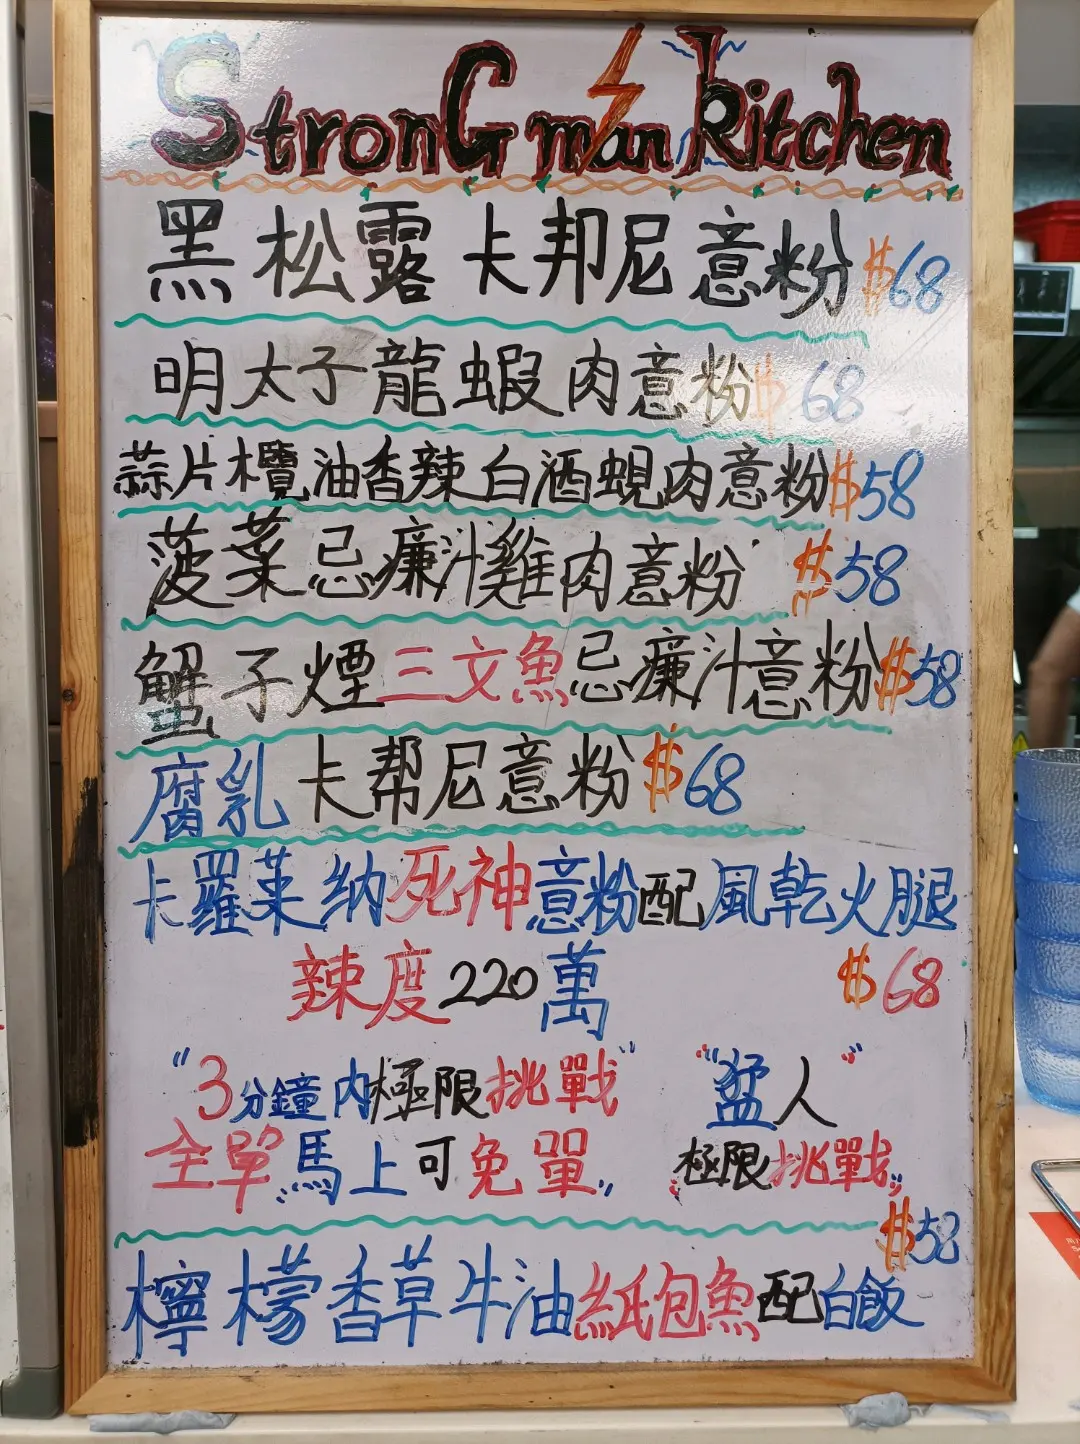 StronG man kitchen
黑松露卡邦尼意粉 $68
明太子龍蝦肉意粉 $68
蒜片欖油香辣白酒蜆肉意粉 $58
菠菜忌廉汁雞肉意粉 $58
蟹子煙三文魚忌廉汁意粉 $58
腐乳卡帮尼意粉 $68
卡羅莱纳死神意粉配風乾火腿
辣度220萬 $68
"3分鐘內極限挑戰" "猛人"
全單"馬上可免單" 極限挑戰"
$52
檸檬香草牛油紙包魚配白飯